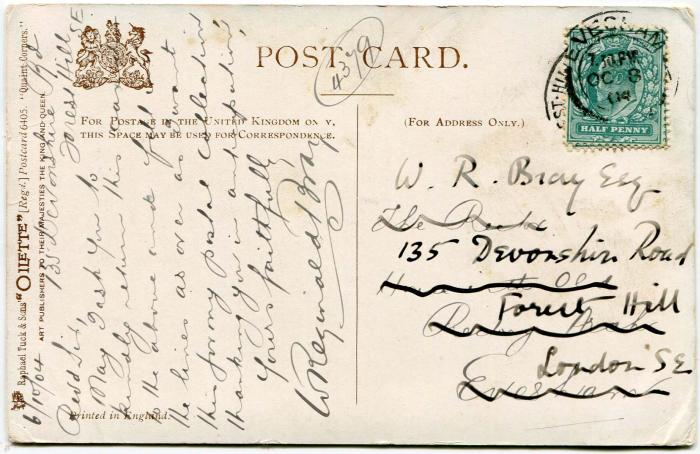 POST CARD.
4379
FOR POSTAGE IN THE UNITED KINGDOM ONLY,
THIS SPACE MAY BE USED FOR CORRESPONDENCE.
(FOR ADDRESS ONLY.)
EVESHAM
OC 8
04
HALF PENNY
Raphael Tuck & Sons' "OILETTE" [Regd.] Postcard 6405. "Quaint Corners."
ART PUBLISHERS TO THEIR MAJESTIES THE KING AND QUEEN.
Printed in England.
135 Devonshire Rd
Forest Hill SE
6/10/04
Revd Sir,
May I ask you to
kindly return this card
to the above
the lines as over as I want
this for my postal collection
thanking you in anticipation
Yours faithfully
W Reginald Bray
W. R. Bray Esq
The
135 Devonshire Road
Forest Hill
London SE
Evesham